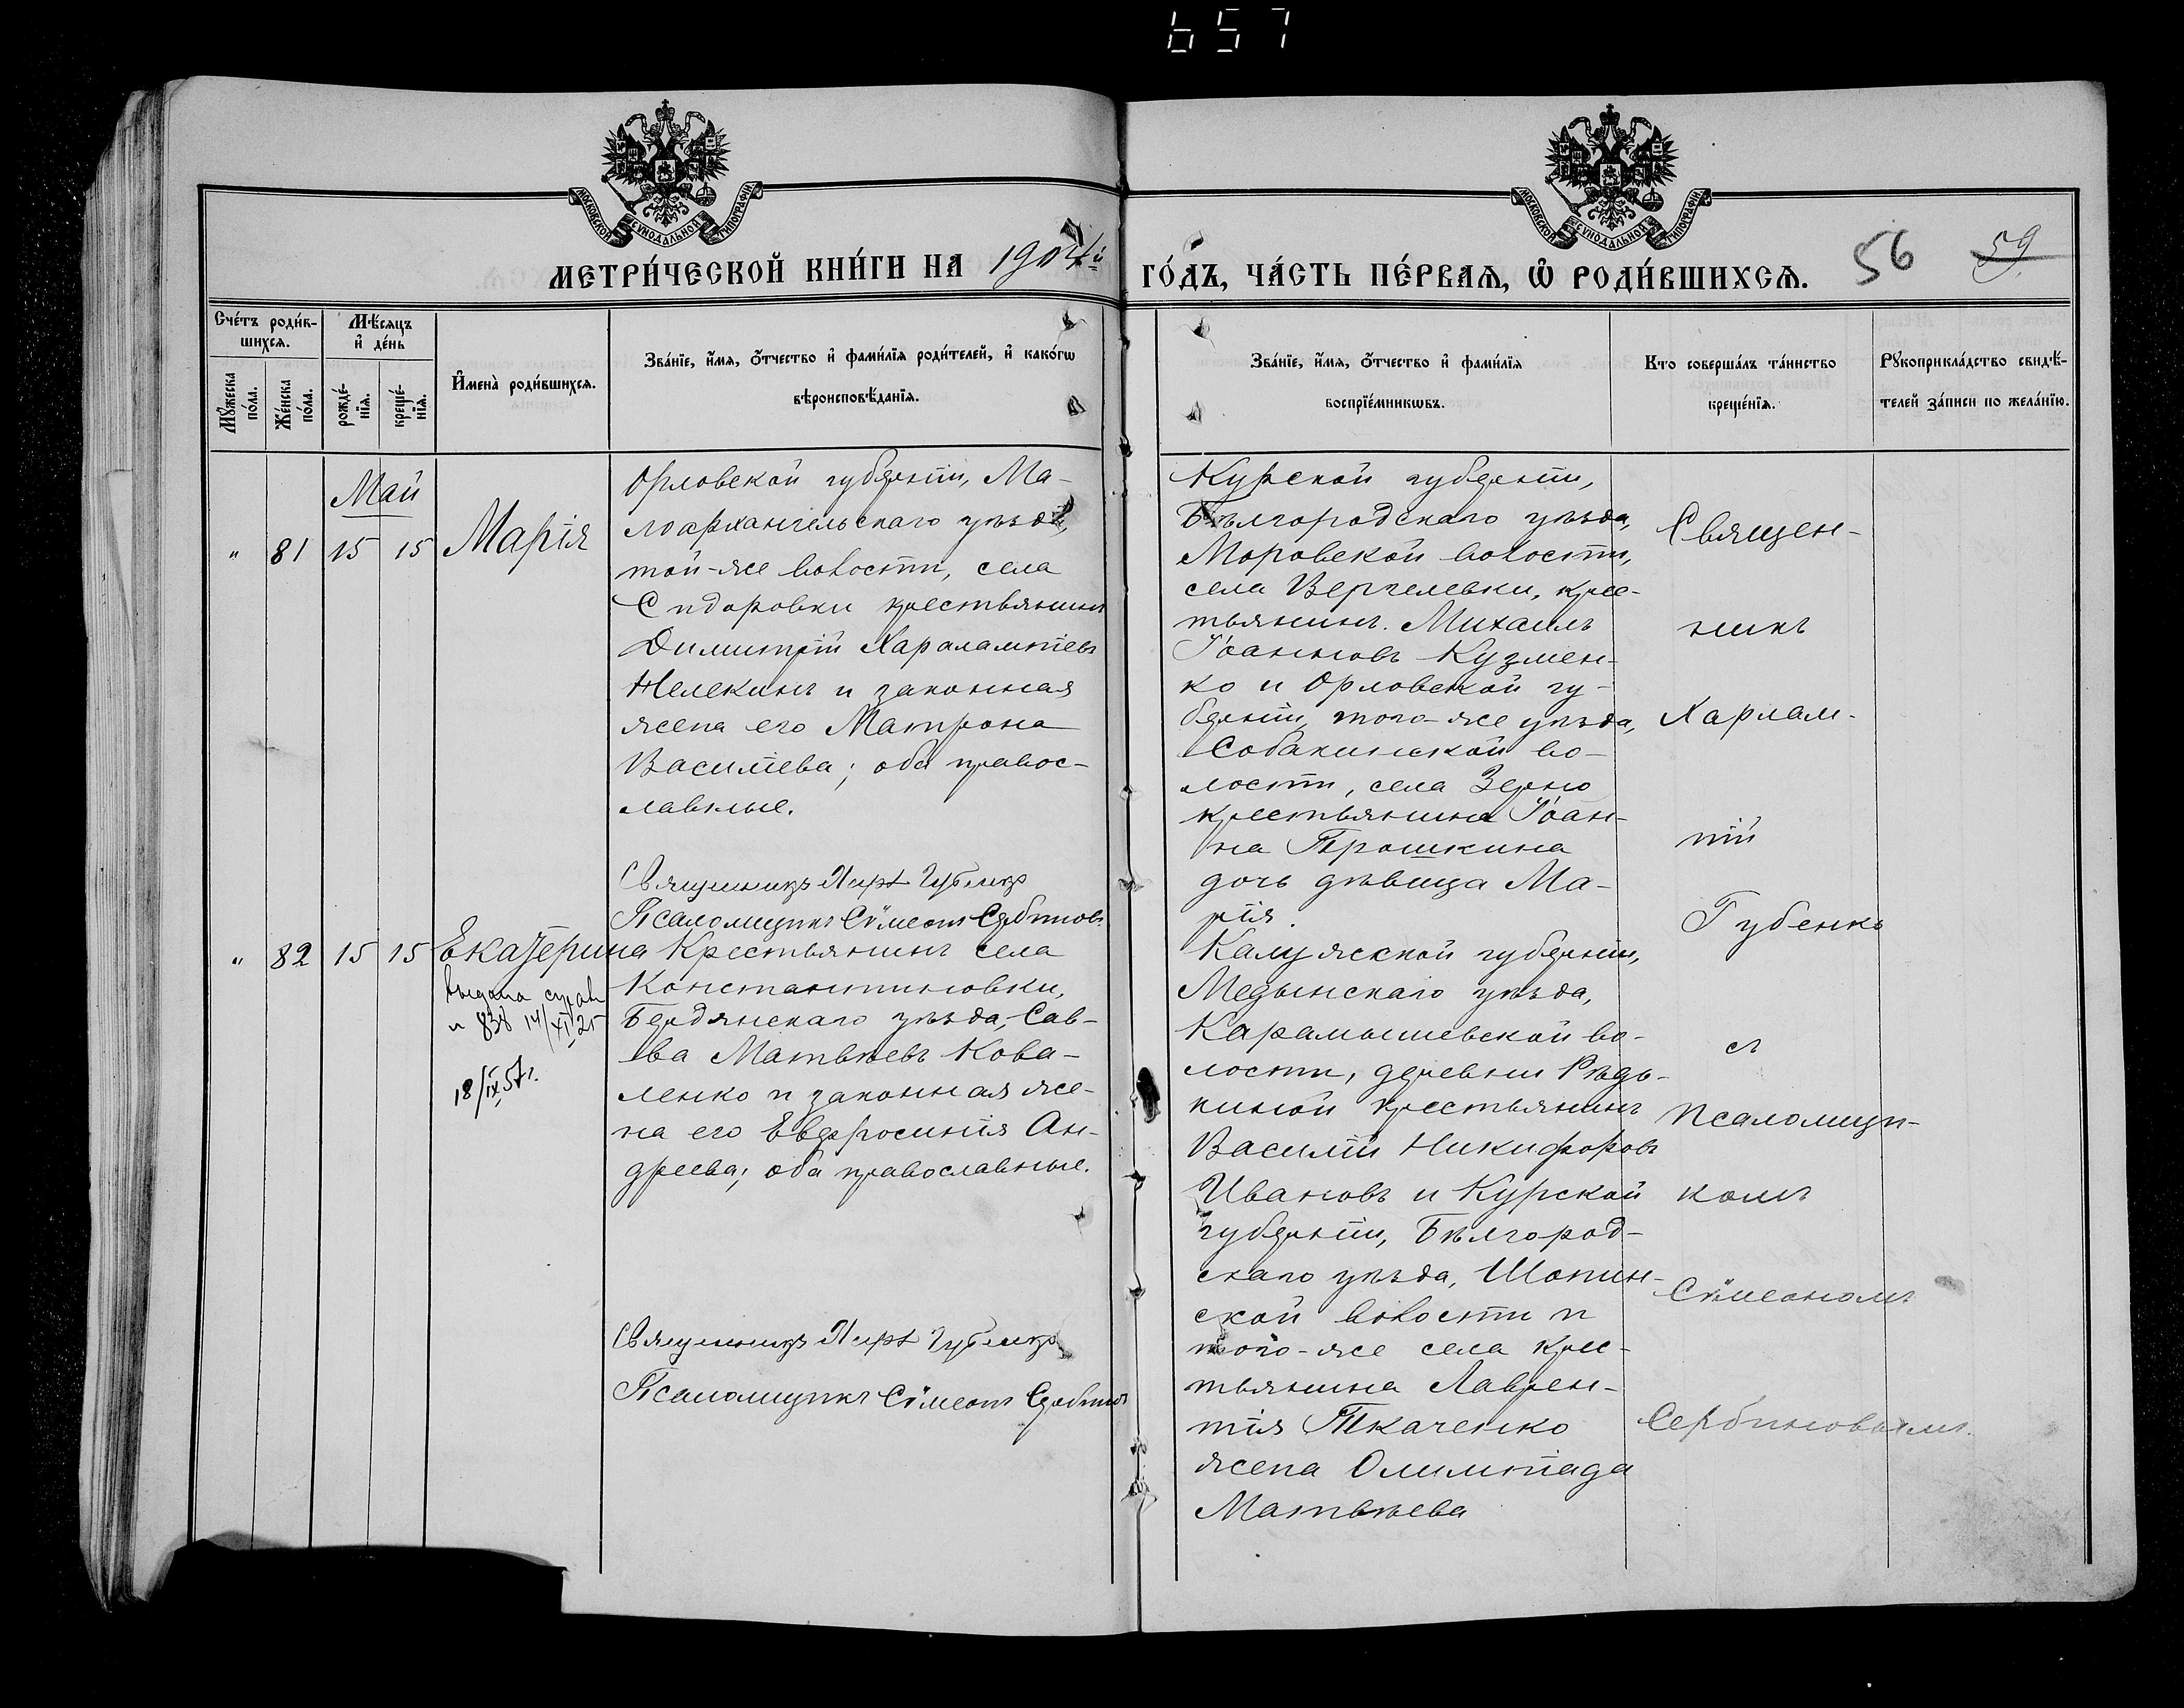 657
МОСКОВСКОЙ СѴНОДАЛЬНОЙ ТИПОГРАФІИ
МОСКОВСКОЙ СѴНОДАЛЬНОЙ ТИПОГРАФІИ
МЕТРИ́ЧЕСКОЙ КНИ́ГИ НА 1904й ГО́ДЪ, ЧА́СТЬ ПЕ́РВАѦ, Ѡ РОДИ́ВШИХСѦ.
56 59
Сче́тъ роди́в-
шихсѧ.
Мѣ́сѧцъ
и҆ де́нь
Мꙋ́жеска
по́ла.
Же́нска
по́ла.
рожде́-
нїѧ.
креще́-
нїѧ.
И҆мена̀ роди́вшихсѧ.
Зва́нїе, и҆́мѧ, ѻ҆́тчество и҆ фами́лїѧ роди́телей, и҆ како́гѡ
вѣроисповѣ́данїѧ.
Зва́нїе, и҆́мѧ, ѻ҆́тчество и҆ фами́лїѧ
воспрїе́мникѡвъ.
Кто соверша́лъ та́инство
креще́нїѧ.
Рꙋкоприкла́дство свидѣ́-
телей за́писи по жела́нїю.
Май
" 81 15 15 Марія
Орловской губерніи, Ма-
лоархангельскаго уѣзда,
той-же волости, села
Сидоровки крестьянинъ
Димитрій Харалампіевъ
Нелекинъ и законная
жена его Матрона
Василіева; оба правос-
лавные.
Священникъ Харл. Губенко
Псаломщикъ Сѵмеонъ Сербиновъ
Курской губерніи,
Бѣлгородскаго уѣзда,
Моровской волости,
села Вергелевки, крес-
тьянинъ Михаилъ
Іоанновъ Кузмен-
ко и Орловской гу-
берніи, того-же уѣзда,
Собакинской во-
лости, села Зерно
крестьянина Іоан-
на Трошкина
дочь дѣвица Ма-
рія.
Священ-
никъ
Харлам-
пій
Губенко
съ
псаломщи-
комъ
Сѵмеономъ
Сербиновымъ.
" 82 15 15 Екатерина
выдана справ
n 838 14/XI 25
18/IX 57г.
Крестьянинъ села
Константиновки,
Бердянскаго уѣзда, Сав-
ва Матвѣевъ Кова-
ленко и законная же-
на его Евфросинія Ан-
дреева; оба православные.
Священникъ Харл. Губенко
Псаломщикъ Сѵмеонъ Сербиновъ
Калужской губерніи,
Медынскаго уѣзда,
Карамышевской во-
лости, деревни Рѣдь-
киной крестьянинъ
Василій Никифоровъ
Ивановъ и Курской
губерніи, Бѣлгород-
скаго уѣзда, Шопин-
ской волости и
того-же села крес-
тьянина Лаврен-
тія Ткаченко
жена Олимпіада
Матвѣева